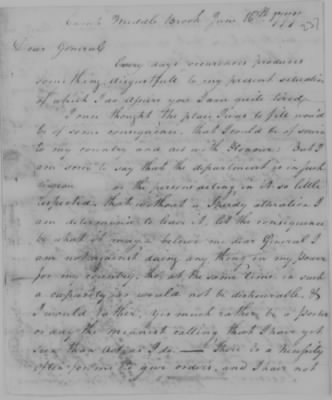 Camp Middle Brook June 16th 1777
Dear General
Every days occurrence produces
something disgustfull to my present situation
of which I do assure you I am quite tired,
I once thought the place I was to fill would
be of some consequence, that I could be of service
to my country and act with Honour. But I
am sorry to say that the department is in such
or the person acting in it so little
respected, that without a speedy alteration I
am determined to leave it, let the consequence
be what it may, believe me dear General I
am not against doing any thing in my power
for my country, tho at the same time in such
a capacity as would not be dishonorable, &
I would rather, yes much rather be a Porter
or any the meanest calling that I have yet
seen than act as I do. — There is a necessity
often for me to give orders, and I have not